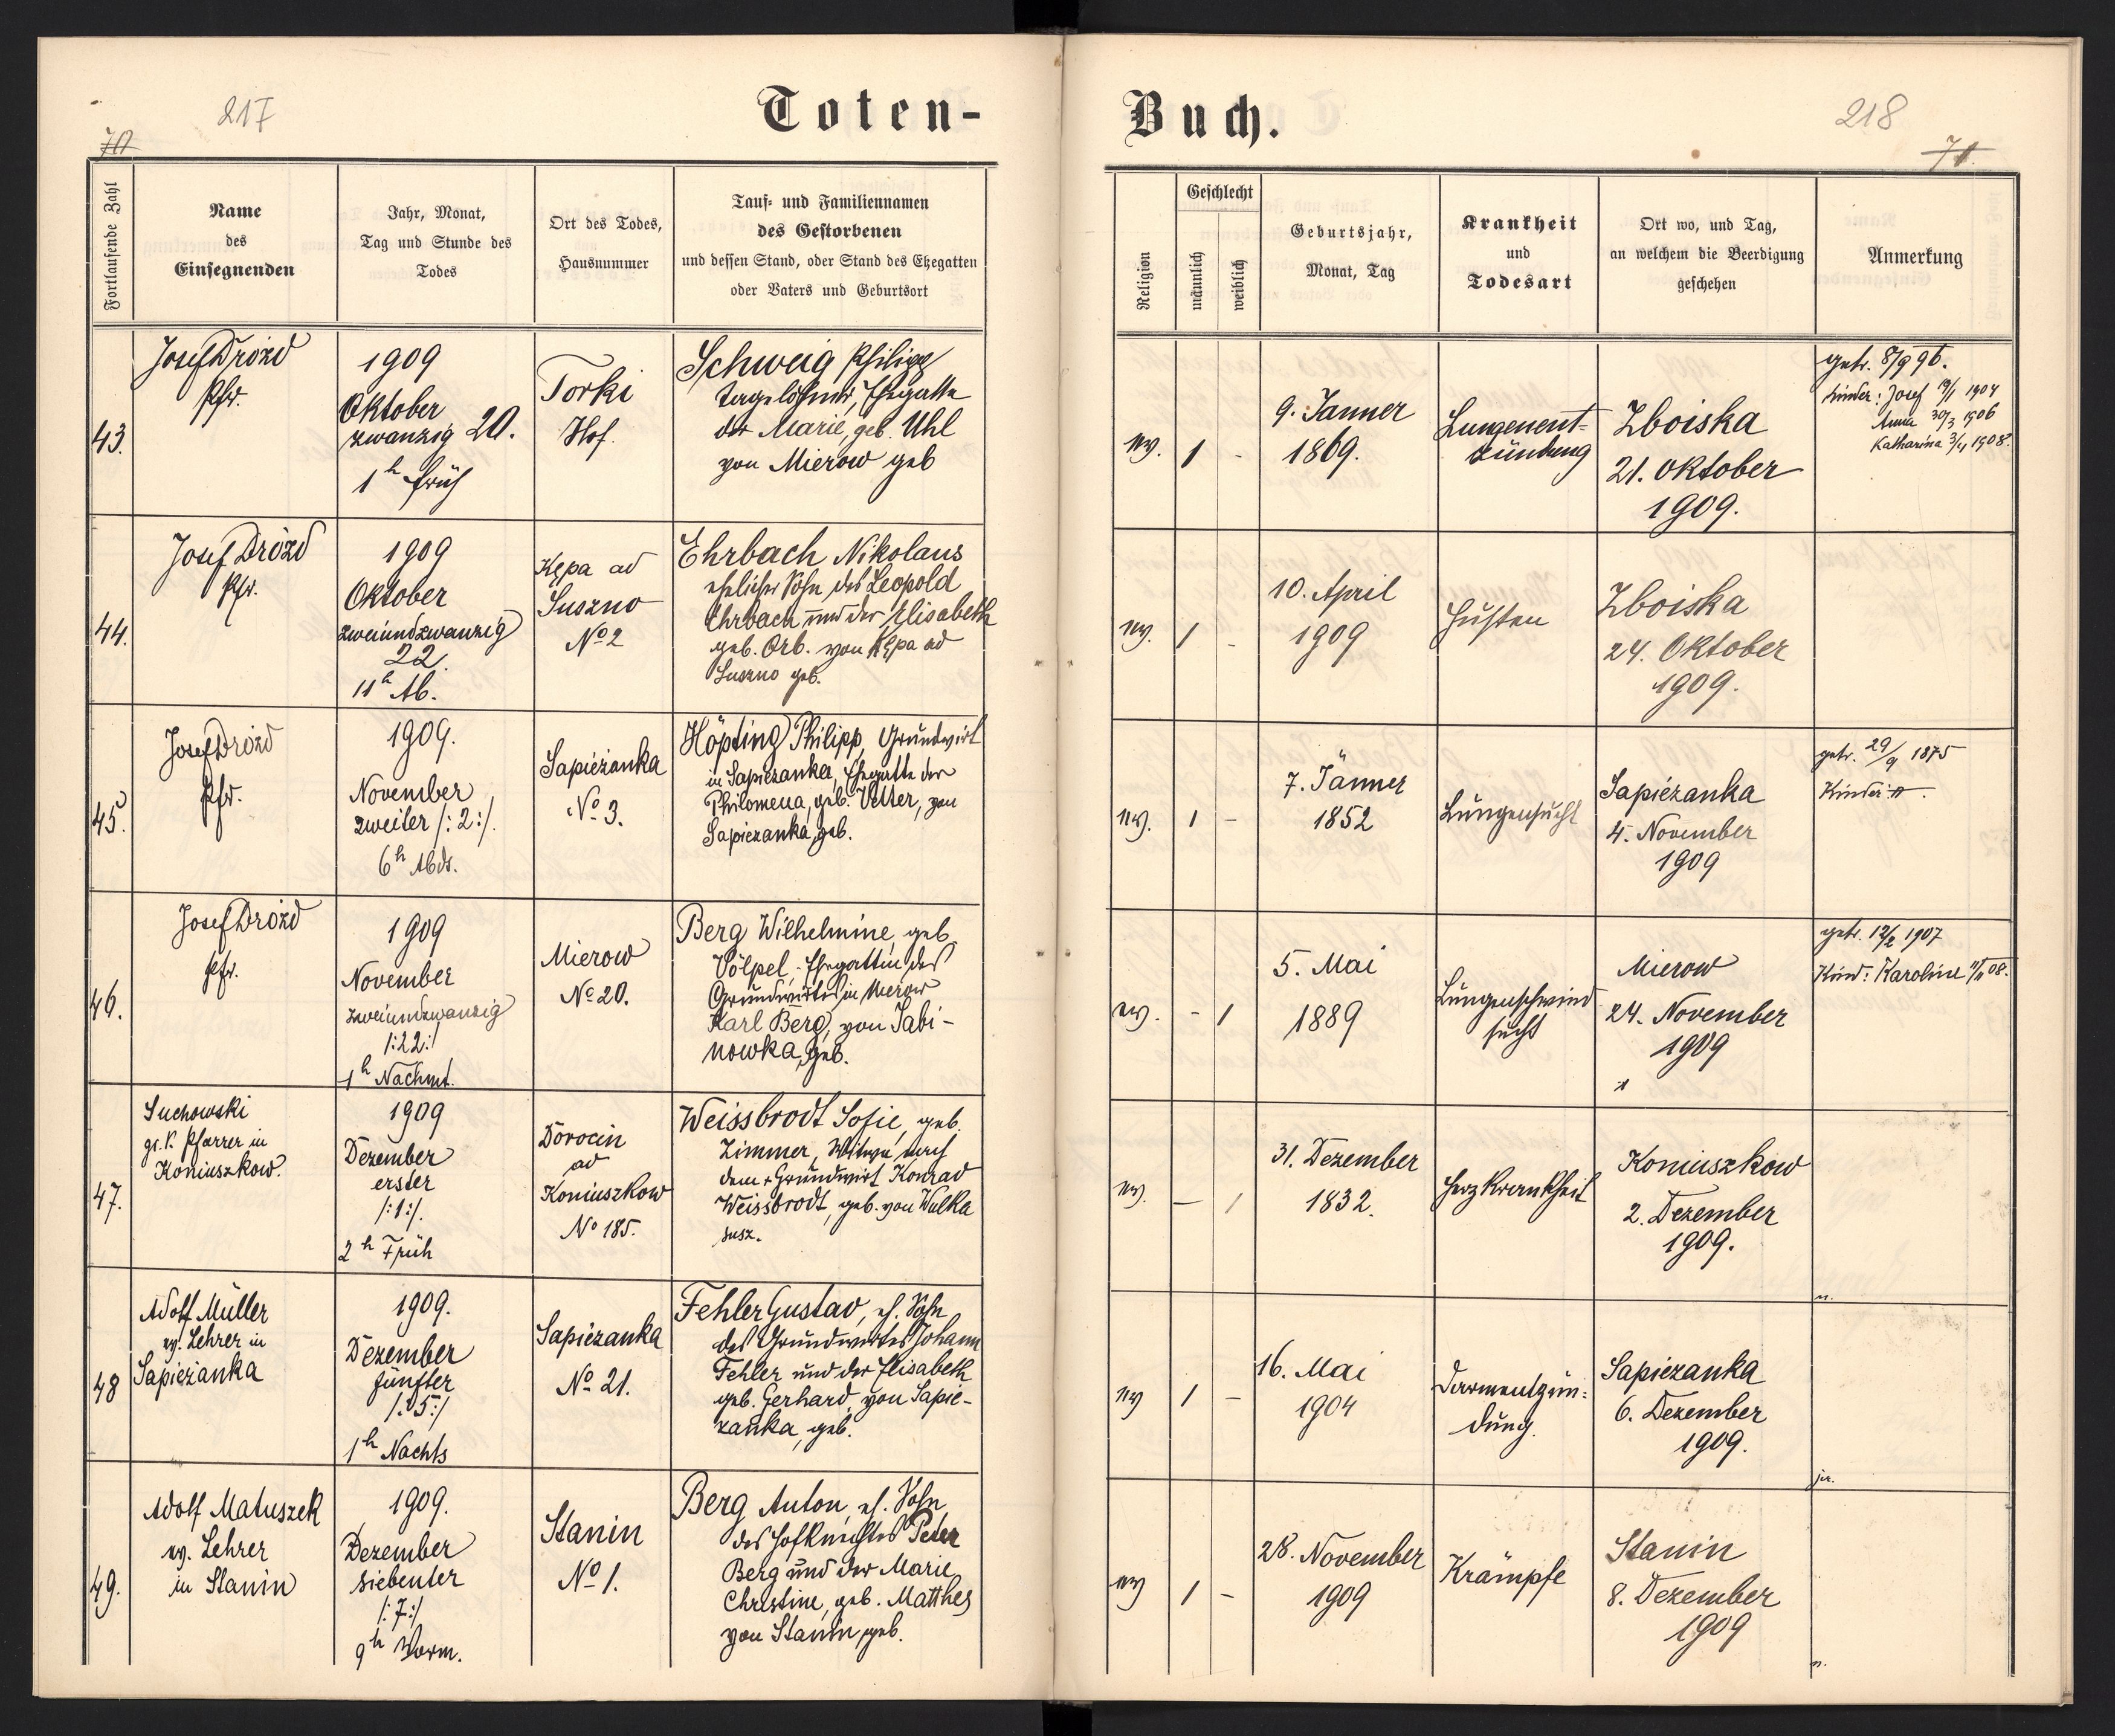 217
70
Toten-
Fortlaufende Zahl
Name
des
Einsegnenden
Jahr, Monat,
Tag und Stunde des
Todes
Ort des Todes,
Hausnummer
Tauf- und Familiennamen
des Gestorbenen
und dessen Stand, oder Stand des Ehegatten
oder Vaters und Geburtsort
43.
Josef Drozd
Pfr.
1909
Oktober
zwanzig 20.
1h früh
Torki
Hof.
Schweig Philipp
Tagelöhner, Ehegatte
der Marie, geb. Uhl
von Mierow geb
44.
Josef Drozd
Pfr.
1909
Oktober
zweiundzwanzig
22.
11h Ab.
Kępa ad
Suszno
No 2
Ehrbach Nikolaus
ehelicher Sohn des Leopold
Ehrbach und der Elisabeth
geb. Orb. von Kępa ad
Suszno geb.
45.
Josef Drozd
Pfr.
1909.
November
zweiter /:2:/.
6h Abds.
Sapieżanka
No 3.
Höpting Philipp, Grundwirt
in Sapiezanka, Ehegatte der
Philomena, geb. Vetter, von
Sapiezanka, geb.
46.
Josef Drozd
Pfr.
1909
November
zweiundzwanzig
/:22:/
1h Nachmt.
Mierow
No 20.
Berg Wilhelmine, geb.
Völpel, Ehegattin des
Grundwirtes in Mierow
Karl Berg, von Sabi-
nowka, geb.
47.
Suchowski
gr. k. Pfarrer in
Koniuszkow.
1909
Dezember
erster
/:1:/.
2h Früh
Dorocin
ad
Koniuszkow
No 185.
Weissbrodt Sofie, geb.
Zimmer, Witwe nach
dem + Grundwirt Konrad
Weissbrodt, geb. von Wulka
susz.
48
Adolf Müller
ev. Lehrer in
Sapiezanka
1909.
Dezember
fünfter
/:5:/
1h Nachts
Sapiezanka
No 21.
Fehler Gustav, eh. Sohn
des Grundwirtes Johann
Fehler und der Elisabeth
geb. Gerhard, von Sapie-
zanka, geb.
49.
Adolf Matuszek
ev. Lehrer
in Stanin
1909.
Dezember
siebenter
/:7:/
9h Vorm.
Stanin
No 1.
Berg Anton, eh. Sohn
des Hofknechtes Peter
Berg und der Marie
Christine, geb. Matthes
von Stanin, geb.
Buch.
218
71.
Religion
Geschlecht
männlich
weiblich
Geburtsjahr,
Monat, Tag
Krankheit
und
Todesart
Ort wo, und Tag,
an welchem die Beerdigung
geschehen
Anmerkung
ev. 1 -
9. Janner
1869.
Lungenent-
zündung
Zboiska
21. Oktober
1909.
getr. 8/9 96.
Kinder: Josef 19/1 1904
Anna 30/3 1906
Katharina 3/4 1908.
ev. 1 -
10. April
1909
Husten
Zboiska
24. Oktober
1909.
ev. 1 -
7. Jänner
1852
Lungensucht
Sapiezanka
4. November
1909
getr. 29/9 1875
Kinder:
ev. - 1
5. Mai
1889
Lungenschwind
sucht
Mierow
24. November
1909
getr. 12/2 1907
Kind: Karoline 08.
ev. — 1
31. Dezember
1832.
Herzkrankheit
Koniuszkow
2. Dezember
1909.
n.
ev 1 -
16. Mai
1904
Darmentzün-
dung.
Sapiezanka
6. Dezember
1909.
ev 1 -
28. November
1909
Krämpfe
Stanin
8. Dezember
1909
n.